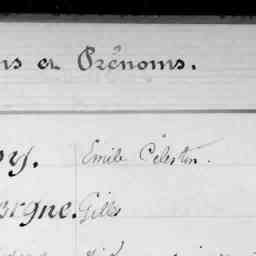 ns et Prénoms.
oy. Emile Célestin.
orgne. Gilles